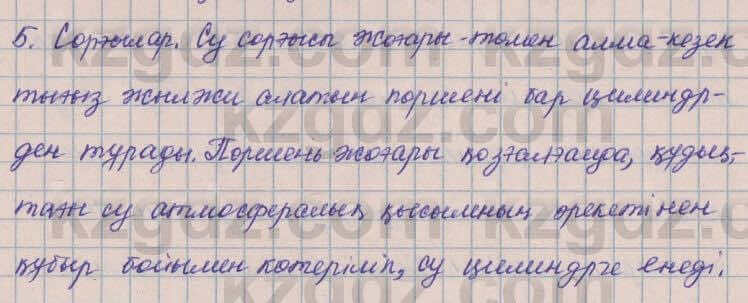 5. Сорғылар. Су сорғысы жоғары-төмен алма-кезек
тығыз жылжи алатын поршені бар цилиндр-
ден тұрады. Поршень жоғары қозғалғанда, құдық-
тағы су атмосфералық қысымның әрекетінен
құбыр бойымен көтеріліп, су цилиндрге енеді.